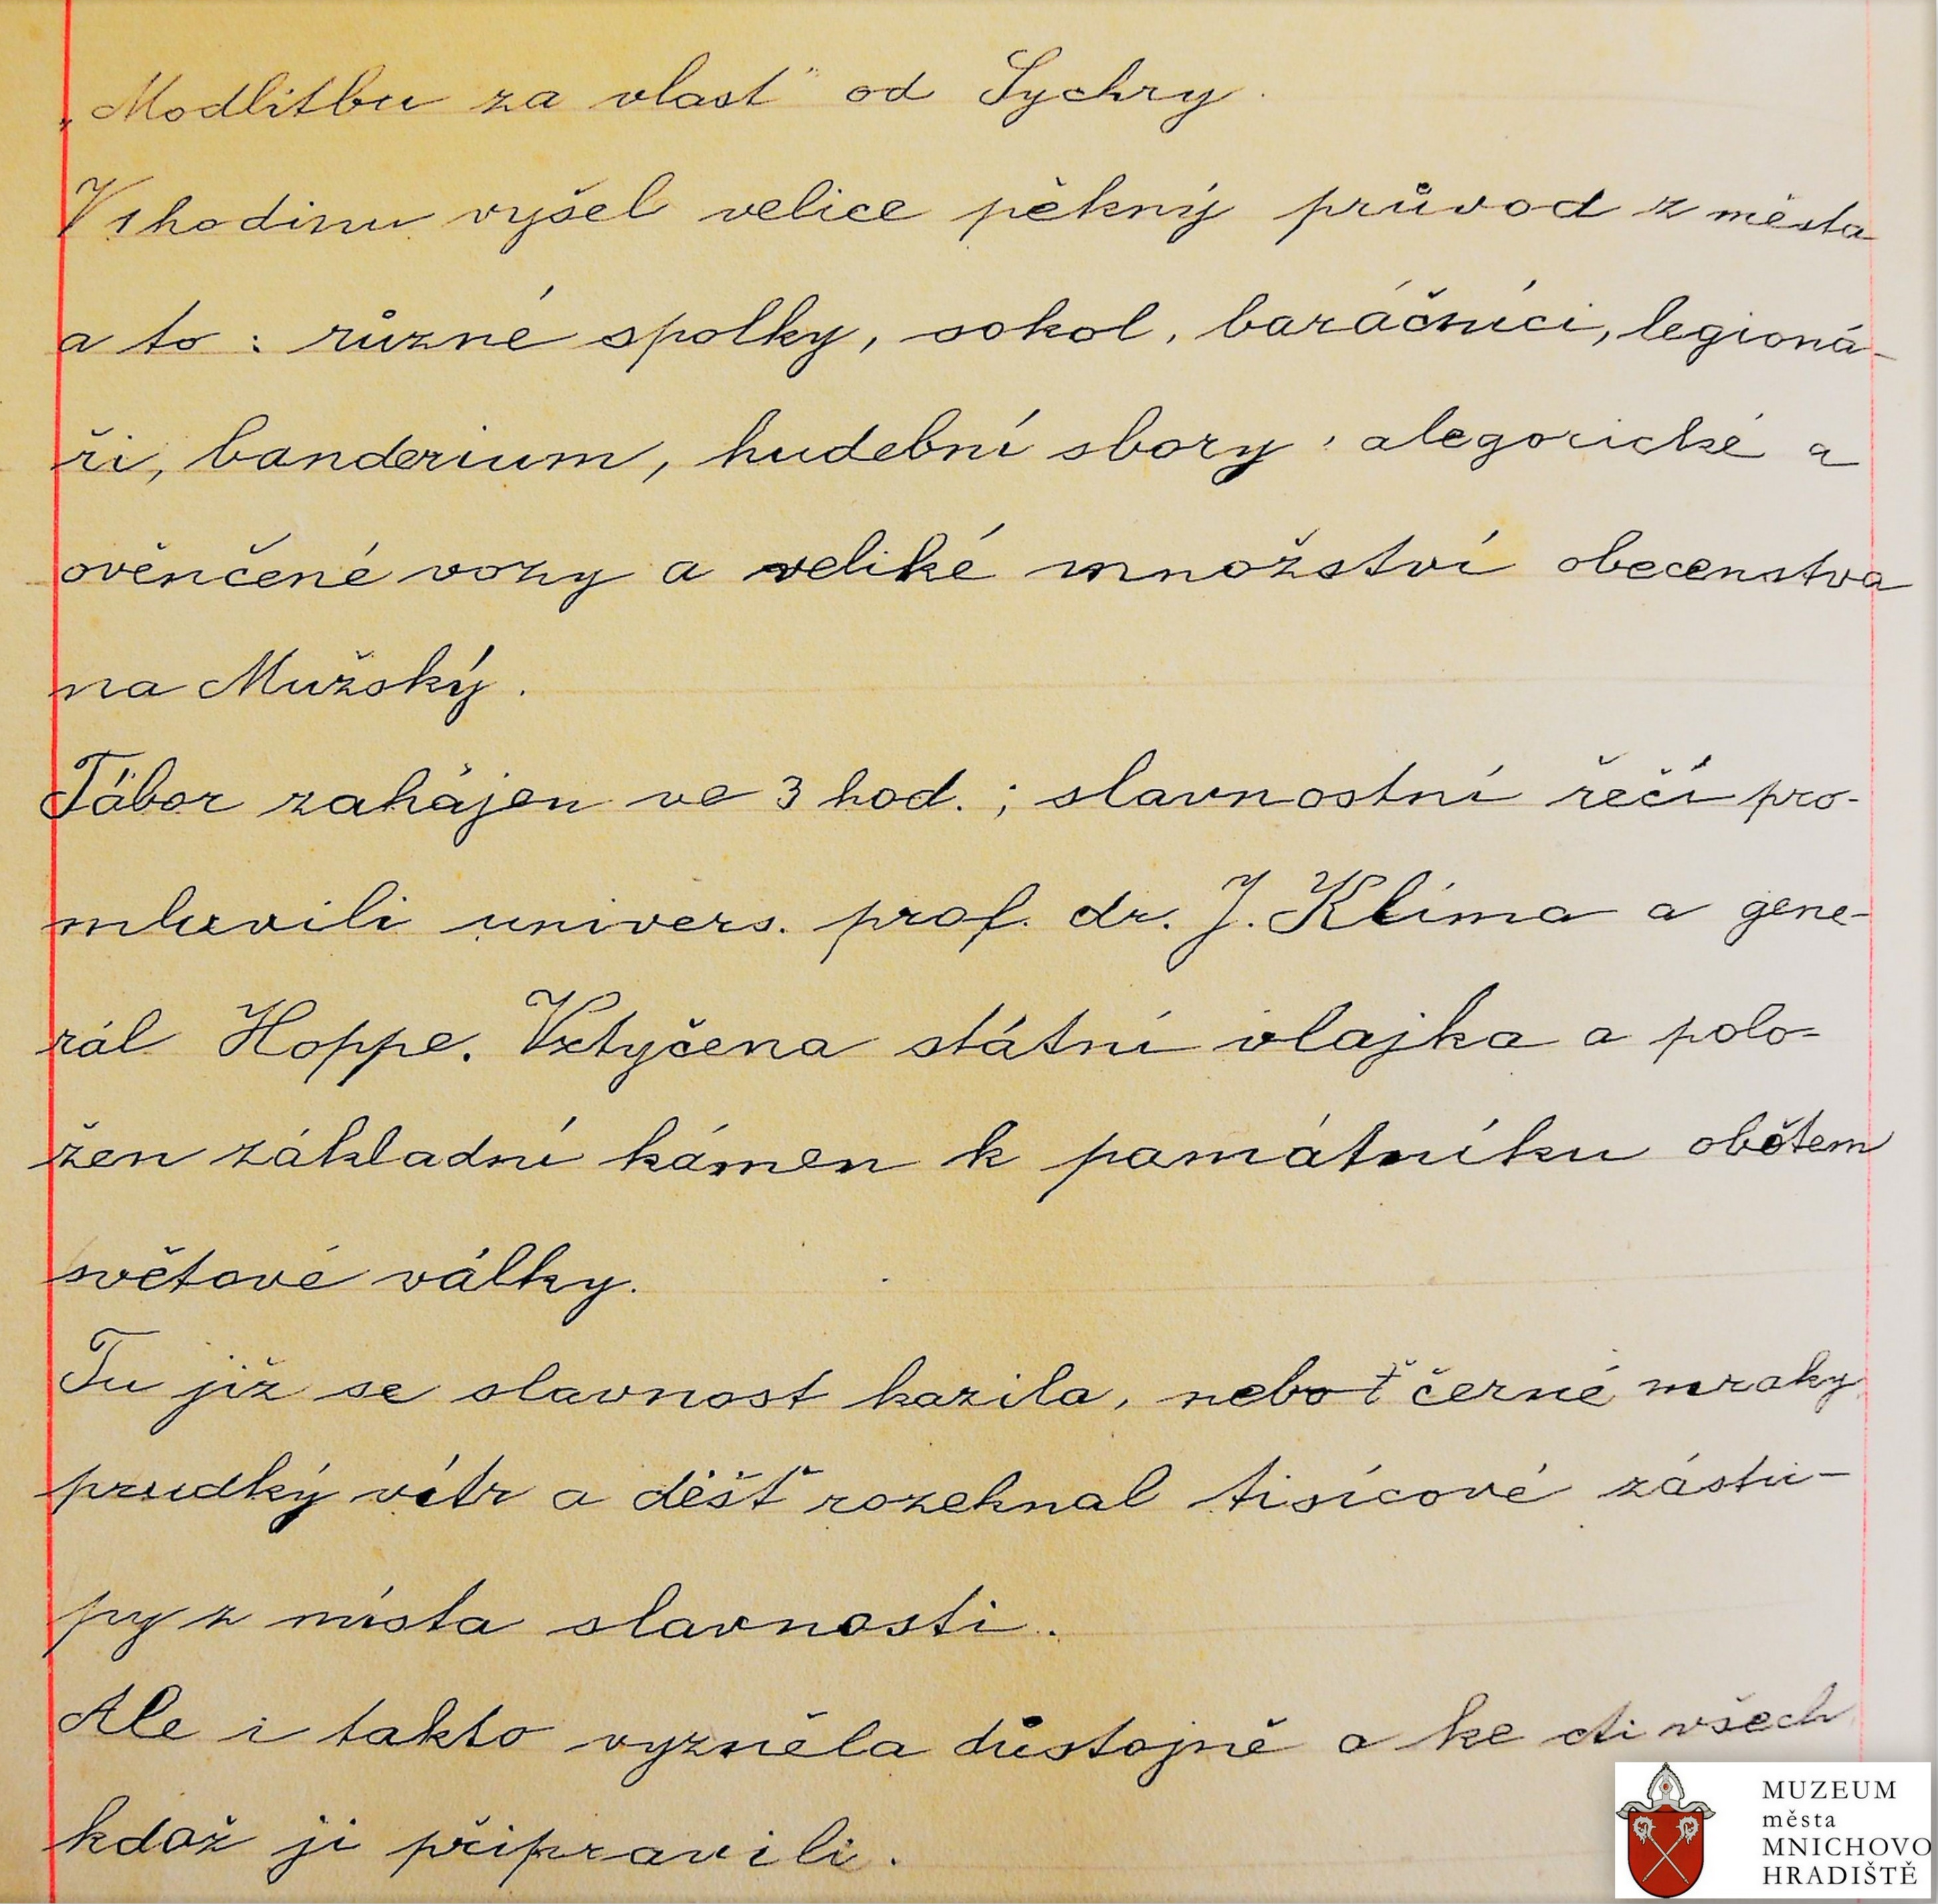 „Modlitbu za vlast" od Sychry.
V 1 hodinu vyšel velice pěkný průvod z města
a to: různé spolky, sokol, baráčníci, legioná-
ři, banderium, hudební sbory, alegorické a
ověnčené vozy a veliké množství obecenstva
na Mužský.
Tábor zahájen ve 3 hod.; slavnostní řečí pro-
mluvili univers. prof. dr. J. Klíma a gene-
rál Hoppe. Vztyčena státní vlajka a polo=
žen základní kámen k památníku obětem
světové války.
Tu již se slavnost kazila, neboť černé mraky
prudký vítr a déšť rozehnal tisícové zástu-
py z místa slavnosti.
Ale i takto vyzněla důstojně a ke cti všech
kdož ji připravili.
MUZEUM
města
MNICHOVO
HRADIŠTĚ